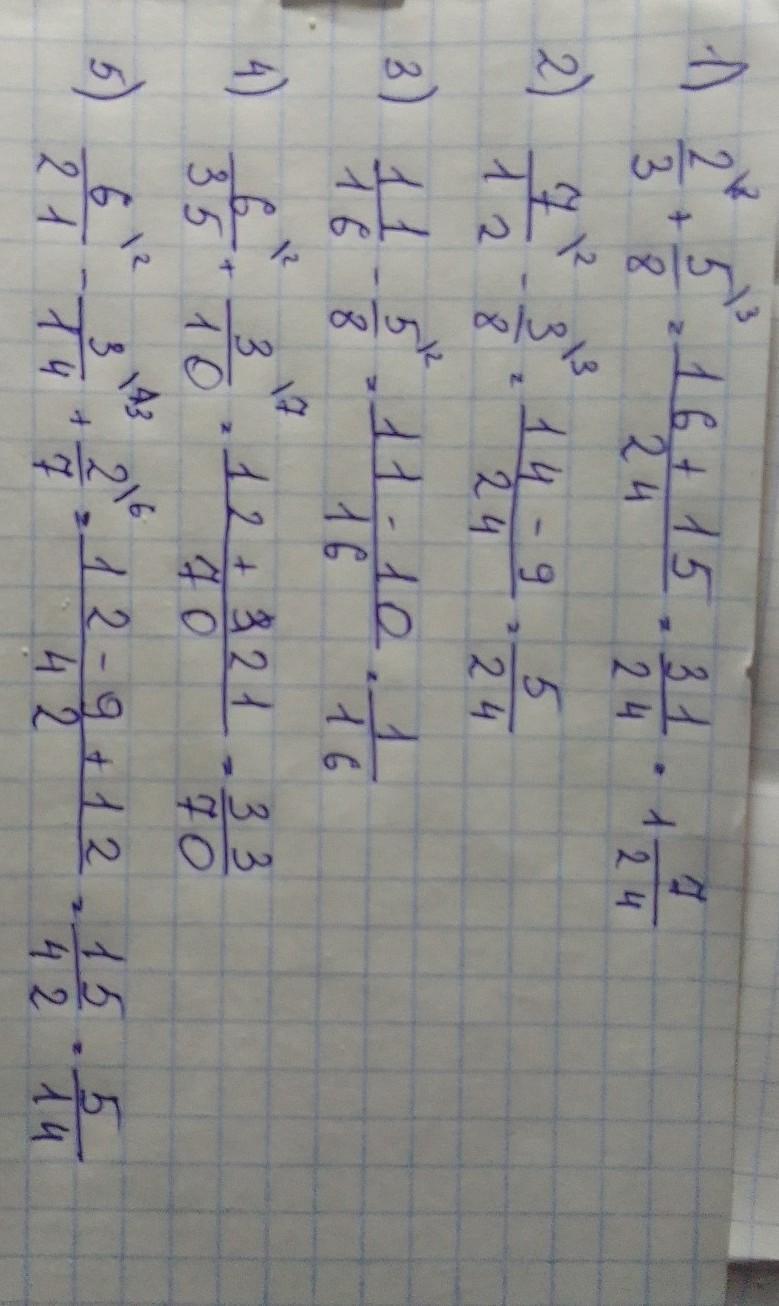 1) 2\2/3 + 5\3/8 = 16+15/24 = 31/24 = 1 7/24
2) 7\2/12 - 3\3/8 = 14-9/24 = 5/24
3) 11/16 - 5\2/8 = 11-10/16 = 1/16
4) 6\2/35 + 3\7/10 = 12+21/70 = 33/70
5) 6\2/21 - 3\3/14 + 2\6/7 = 12-9+12/42 = 15/42 = 5/14